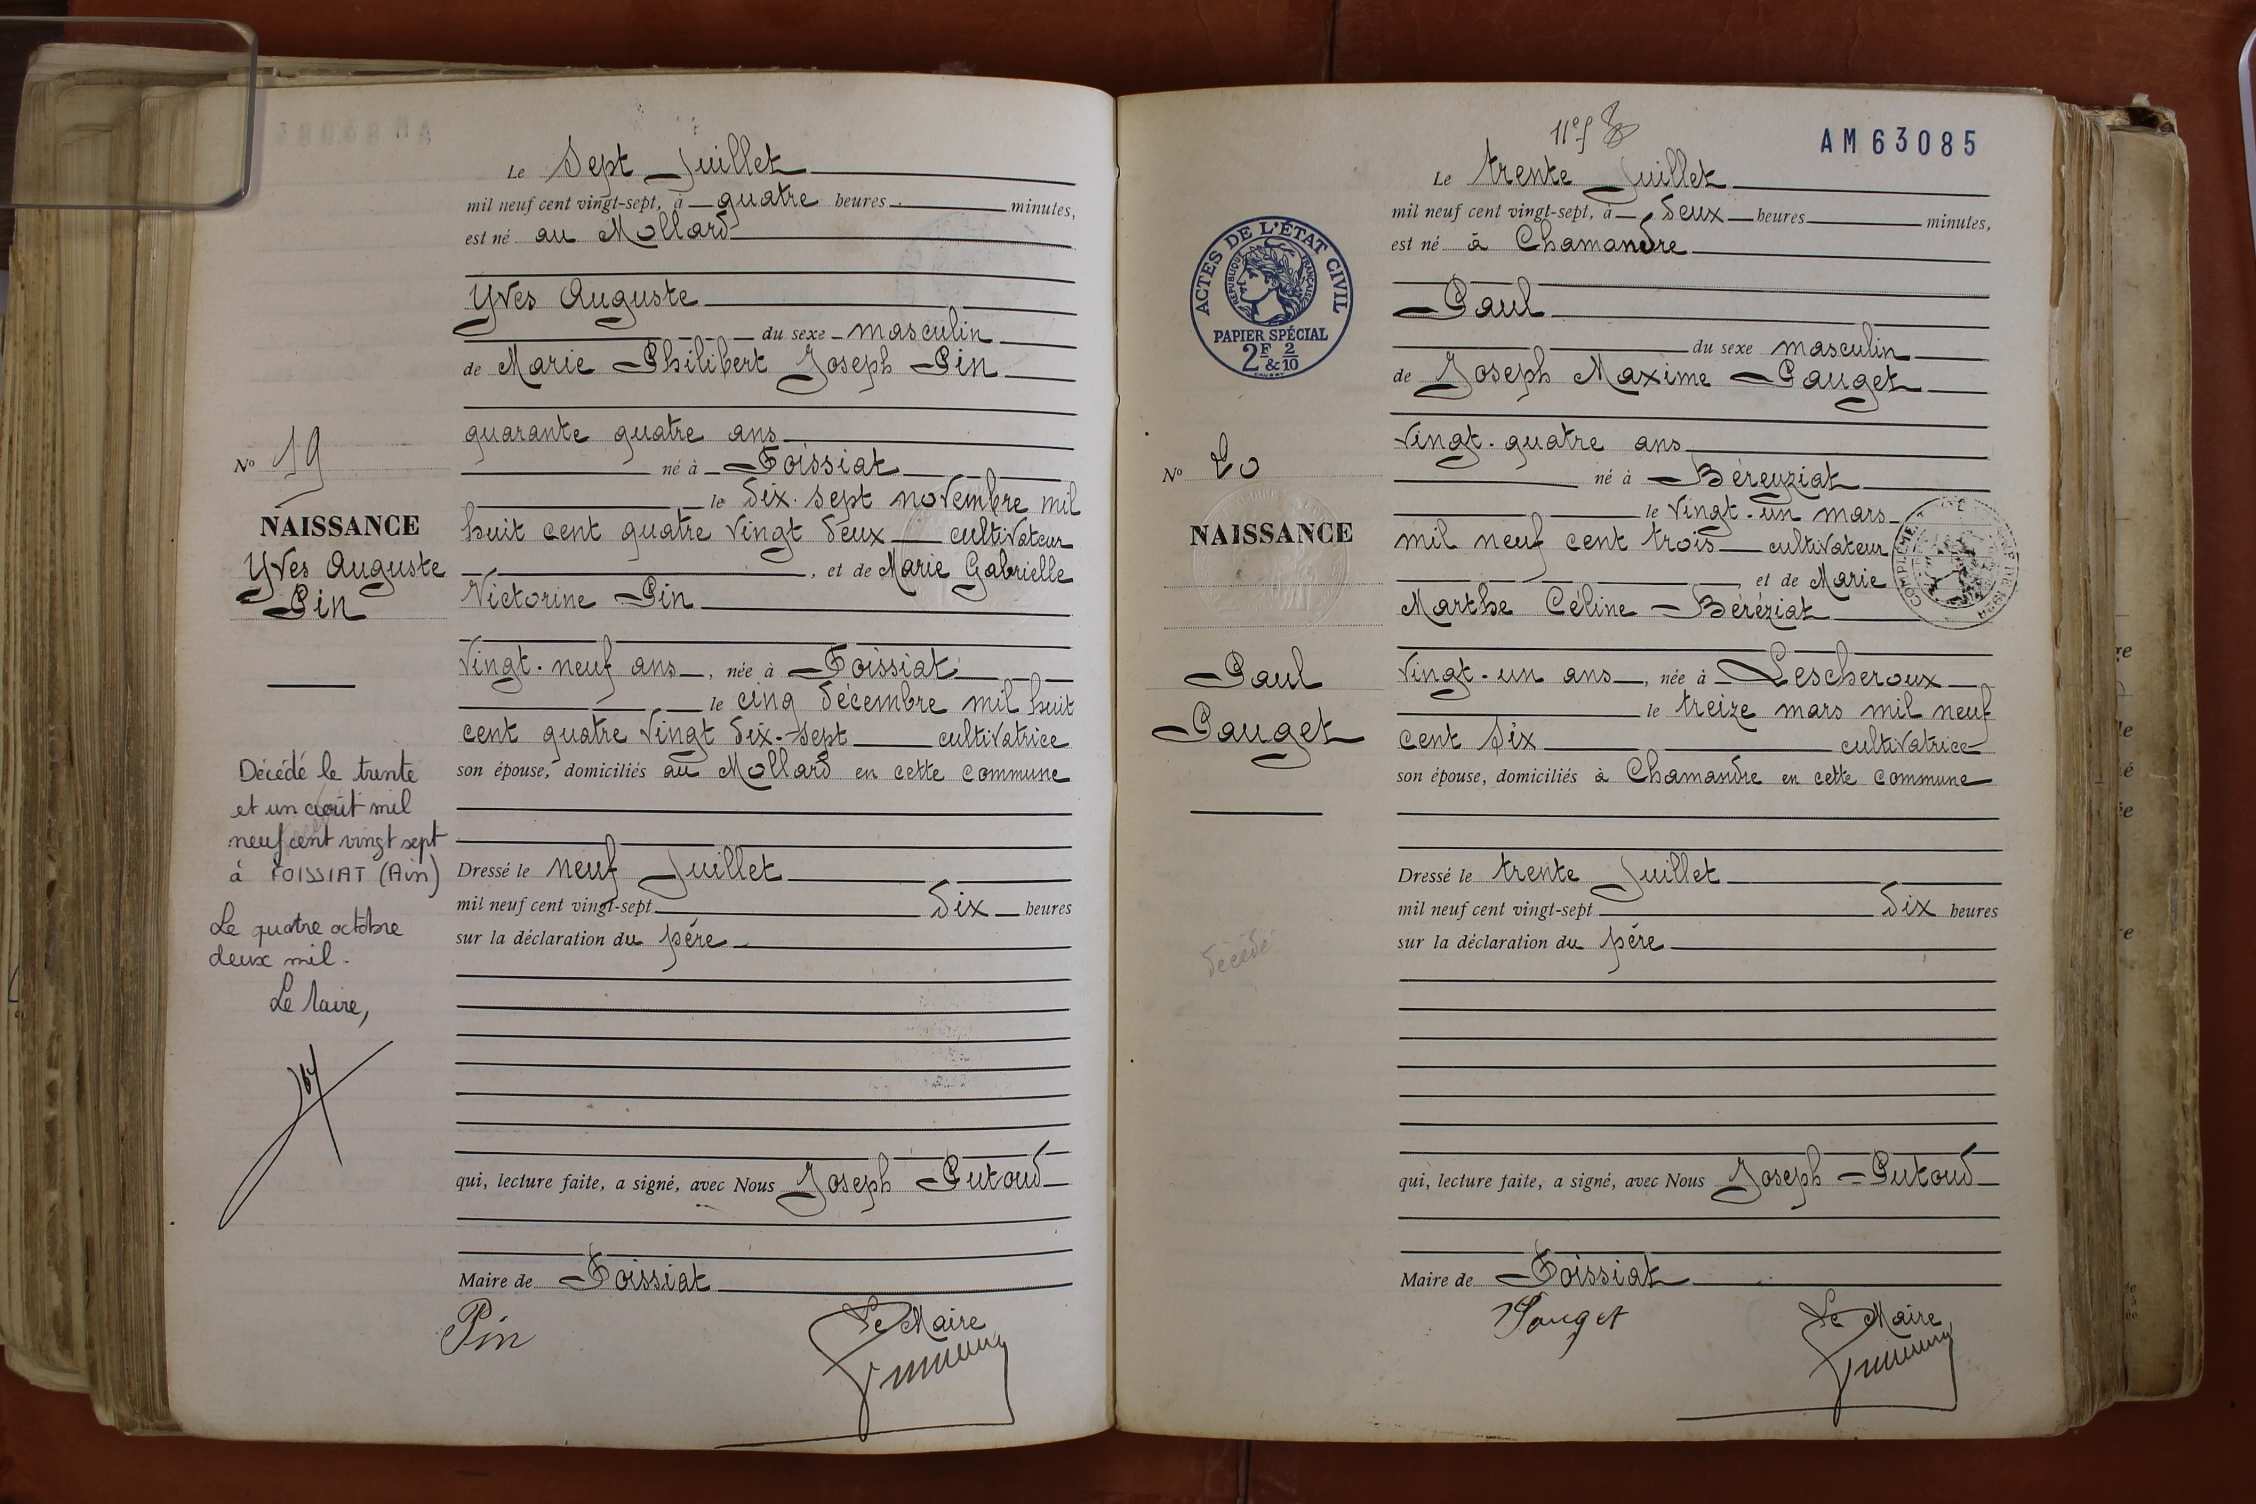 Le Sept Juillet
mil neuf cent vingt-sept, à quatre heures minutes,
est né au Mollard
Yves Auguste
du sexe masculin
de Marie Philibert Joseph Pin
quarante quatre ans
né à Foissiat
le dix-sept novembre mil
huit cent quatre vingt deux cultivateur
, et de Marie Gabrielle
Victorine Pin
vingt-neuf ans, née à Foissiat
le cinq décembre mil huit
cent quatre vingt dix-sept cultivatrice
son épouse, domiciliés au Mollard en cette commune
Dressé le neuf Juillet
mil neuf cent vingt-sept dix heures
sur la déclaration du père
qui, lecture faite, a signé, avec Nous Joseph Putoud
Maire de Foissiat
Pin
Le Maire
No 19
NAISSANCE
Yves Auguste
Pin
Décédé le trente
et un août mil
neuf cent vingt sept
à FOISSIAT (Ain)
Le quatre octobre
deux mil.
Le Maire,
AM63085
Le trente Juillet
mil neuf cent vingt-sept, à deux heures minutes,
est né à Chamandre
Paul
du sexe masculin
de Joseph Maxime Pauget
vingt-quatre ans
né à Béreyziat
le vingt-un mars
mil neuf cent trois cultivateur
et de Marie
Marthe Céline Béréziat
vingt-un ans, née à Lescheroux
le treize mars mil neuf
cent six cultivatrice
son épouse, domiciliés à Chamandre en cette commune
Dressé le trente Juillet
mil neuf cent vingt-sept dix heures
sur la déclaration du père
qui, lecture faite, a signé, avec Nous Joseph Putoud
Maire de Foissiat
Pauget
Le Maire
ACTES DE L'ÉTAT CIVIL
RÉPUBLIQUE FRANÇAISE
PAPIER SPÉCIAL
2F & 2/10
No 20
NAISSANCE
Paul
Pauget
décédé